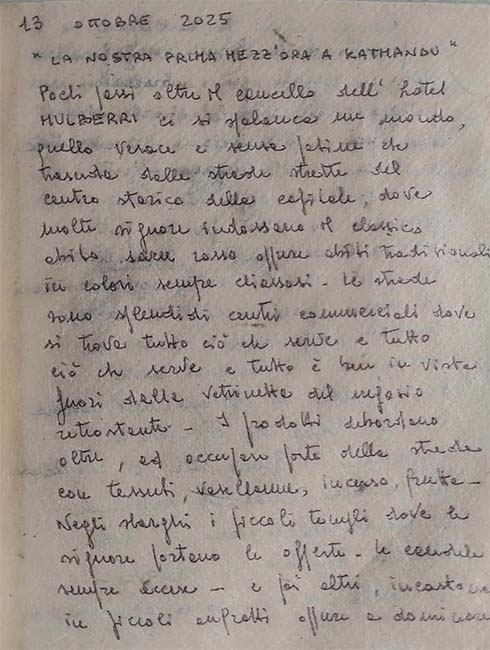 13 OTTOBRE 2025
"LA NOSTRA PRIMA MEZZ'ORA A KATHANDU"
Pochi passi oltre il cancello dell'hotel
MULBERRI ci si spalanca un mondo,
quello verace e senza patine che
trasuda dalle strade strette del
centro storico della capitale, dove
molte signore indossano il classico
abito saree rosso oppure abiti tradizionali
in colori sempre chiassosi - le strade
sono splendidi centri commerciali dove
si trova tutto ciò che serve e tutto
ciò che serve e tutto è ben in vista
fuori dalla vetrinetta del negozio
retrostante - I prodotti debordano
oltre, ad occupare parte della strada
con tessuti, vasellame, incenso, frutta -
Negli slarghi i piccoli templi dove le
signore portano le offerte - le candele
sempre accese - e poi altri, incastona
in piccoli anfratti oppure a dominare